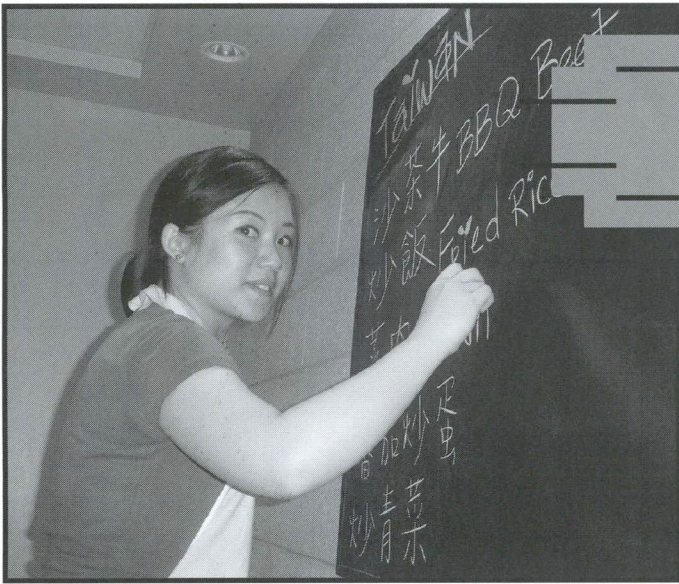 TaiwaN
沙茶牛 BBQ Beef
炒飯 Fried Ric
肉
番加炒蛋
炒青菜